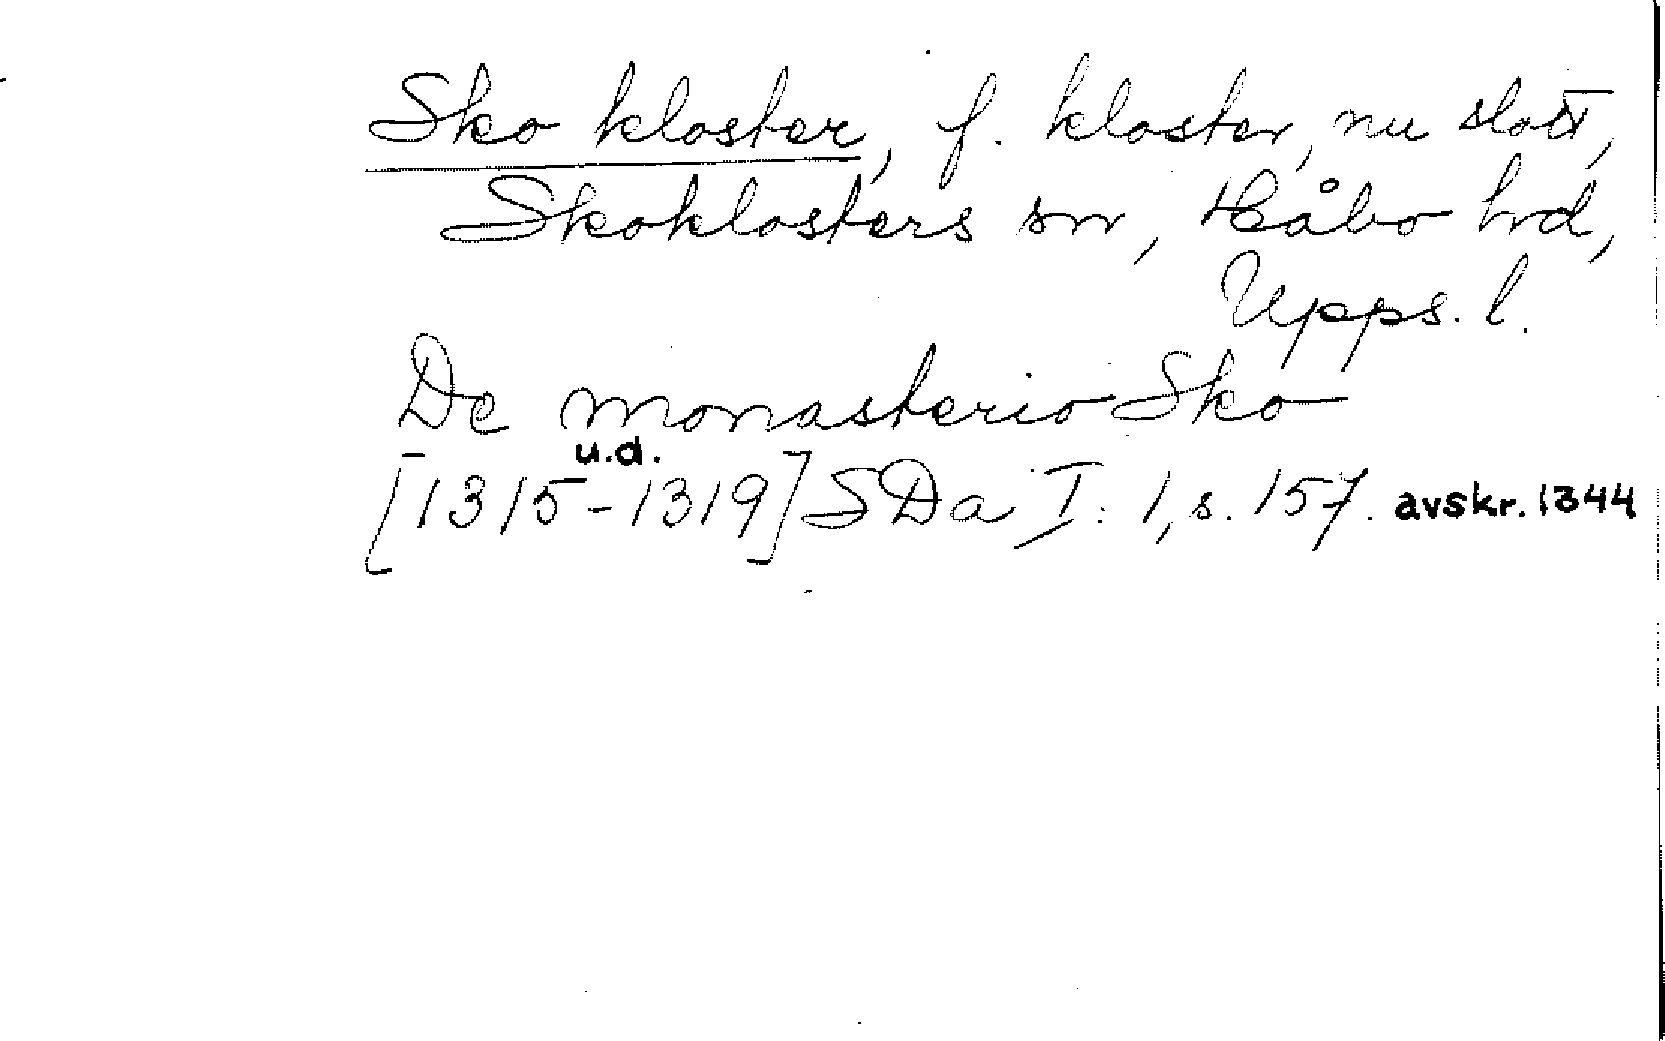 Sko kloster, f. kloster, nu slott,
Skoklosters sn, Håbo hd,
Upps. l.
De monasterio Sko
u.d.
[1315-1319] SDa I: 1, s. 157. avskr. 1344